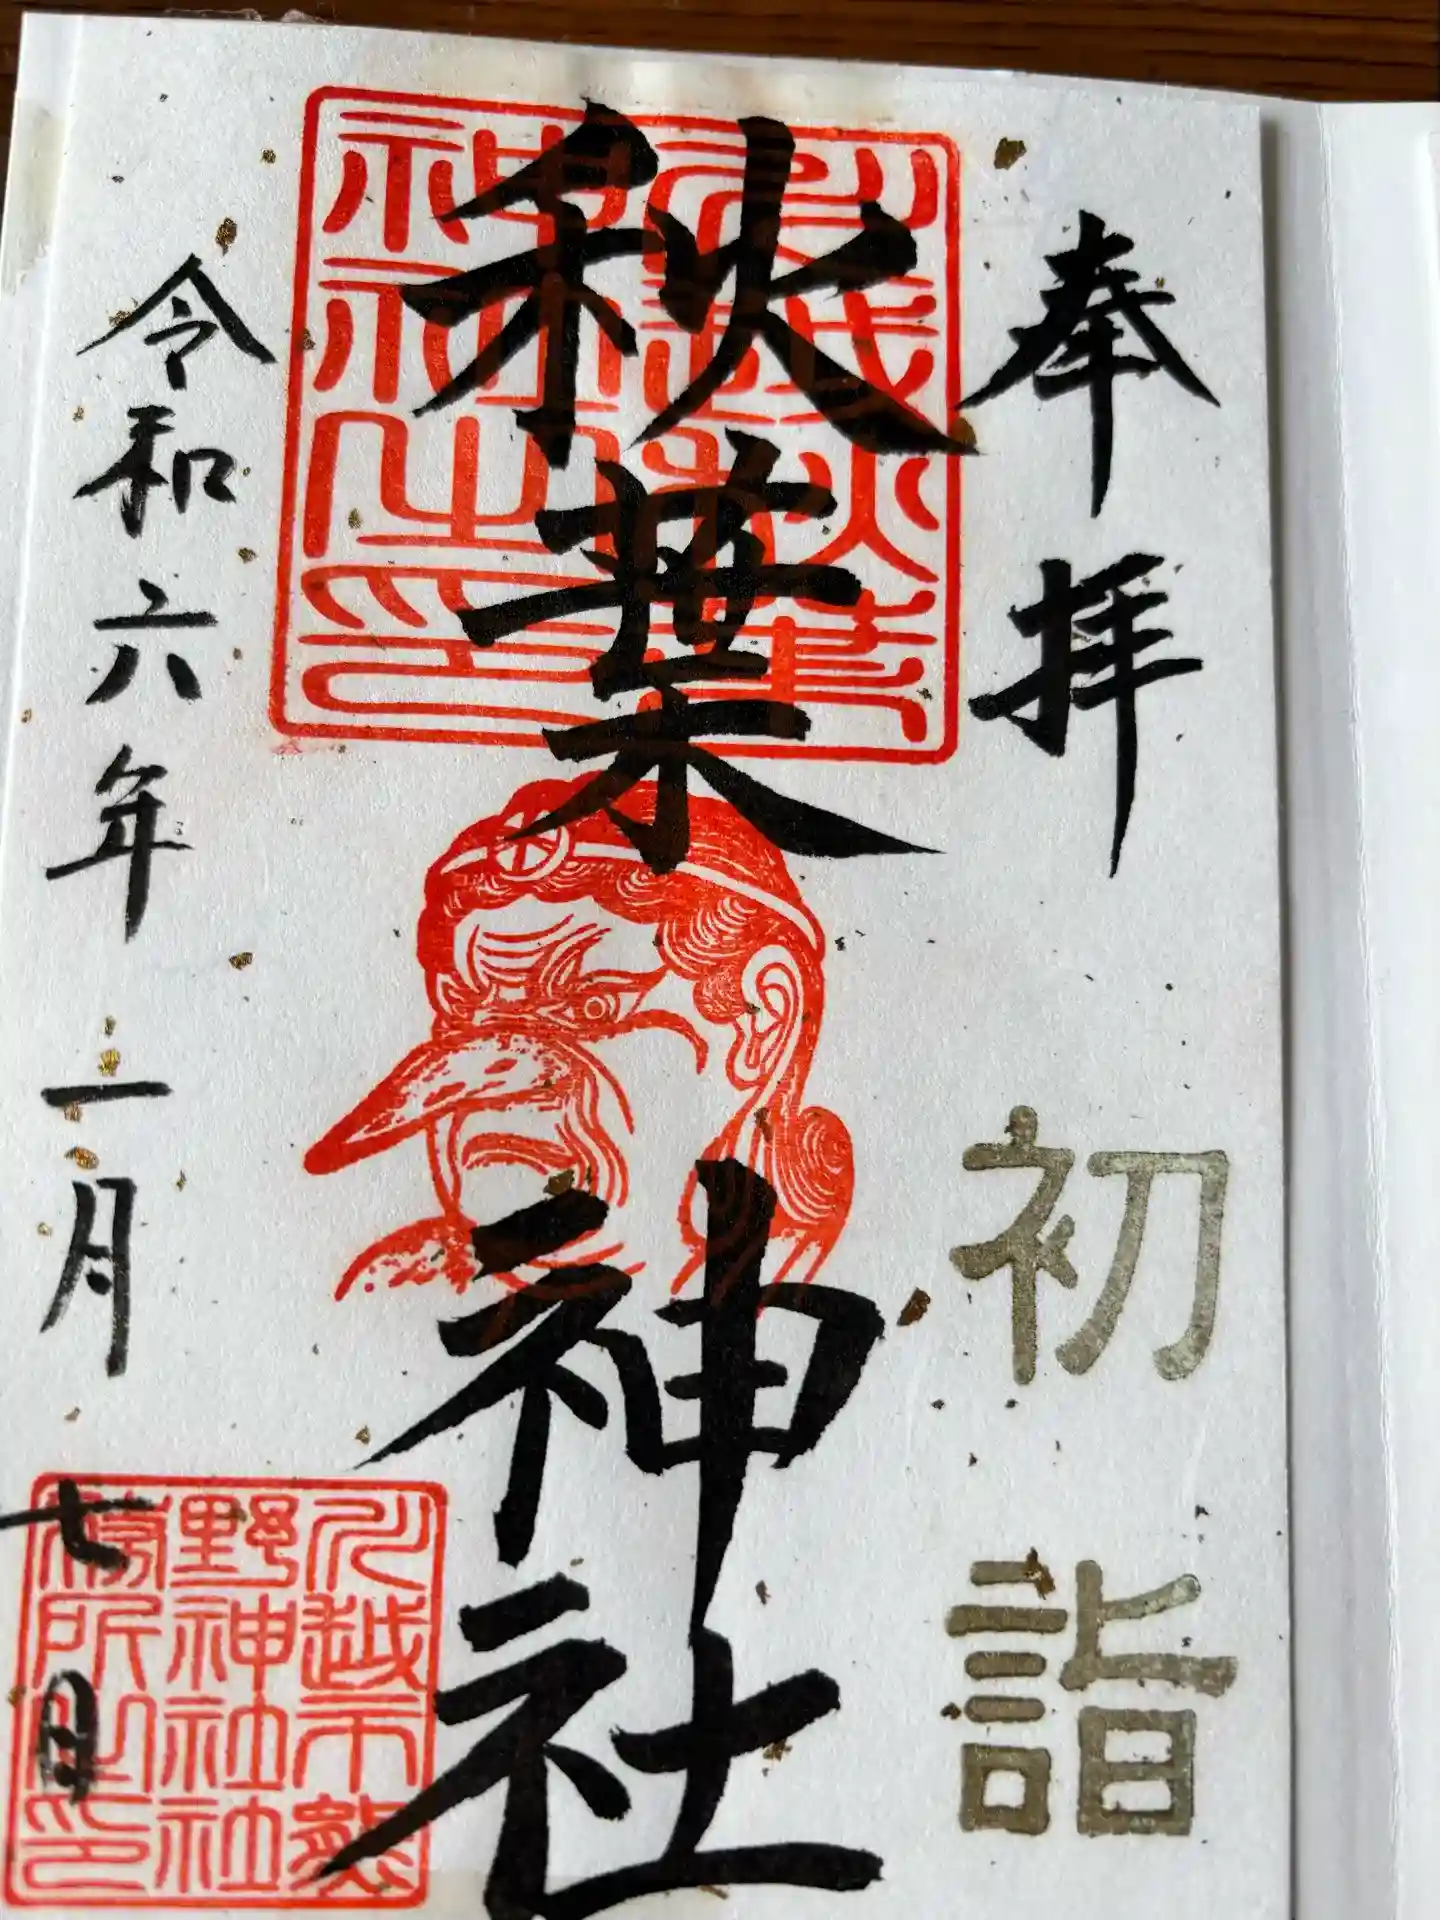 奉拝
初詣
川越秋葉
神社之印
秋葉神社
令和六年一月七日
川越市熊
野神社社
務所之印